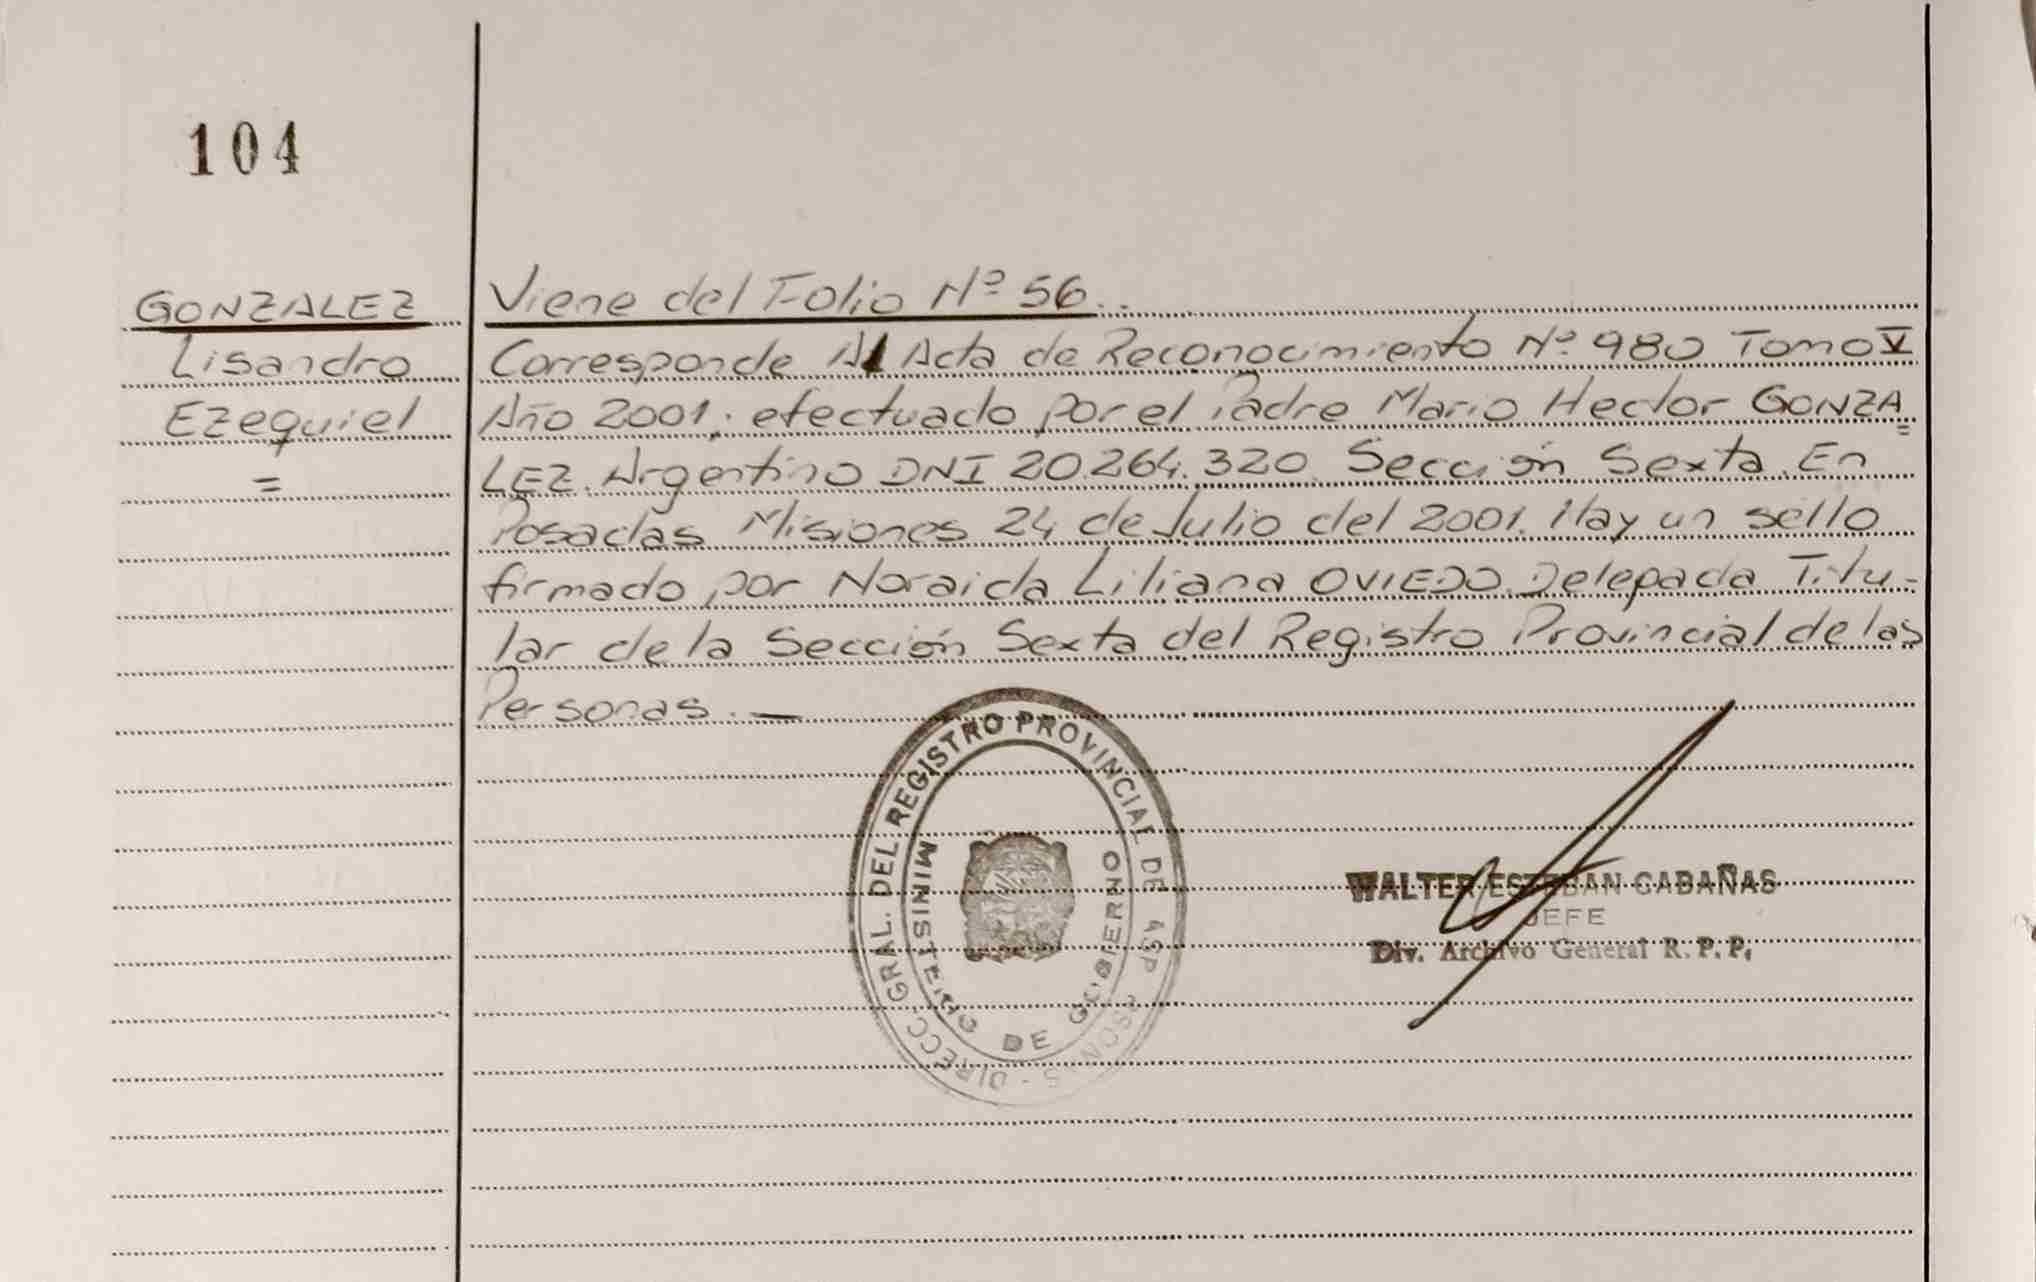 104
GONZALEZ
Lisandro
Ezequiel
=
Viene del Folio Nº 56..
Corresponde Al Acta de Reconocimiento Nº 980 Tomo V
Año 2001; efectuado por el Padre Mario Hector GONZA=
LEZ. Argentino DNI 20.264.320. Sección Sexta. En
Posadas Misiones 24 de Julio del 2001. Hay un sello
firmado por Noraida Liliana OVIEDO. Delegada Titu=
lar de la Sección Sexta del Registro Provincial de las
Personas.—
DIRECC. GRAL. DEL REGISTRO PROVINCIAL DE
MINISTERIO DE GOBIERNO
WALTER ESTEBAN CABAÑAS
JEFE
Div. Archivo General R. P. P.